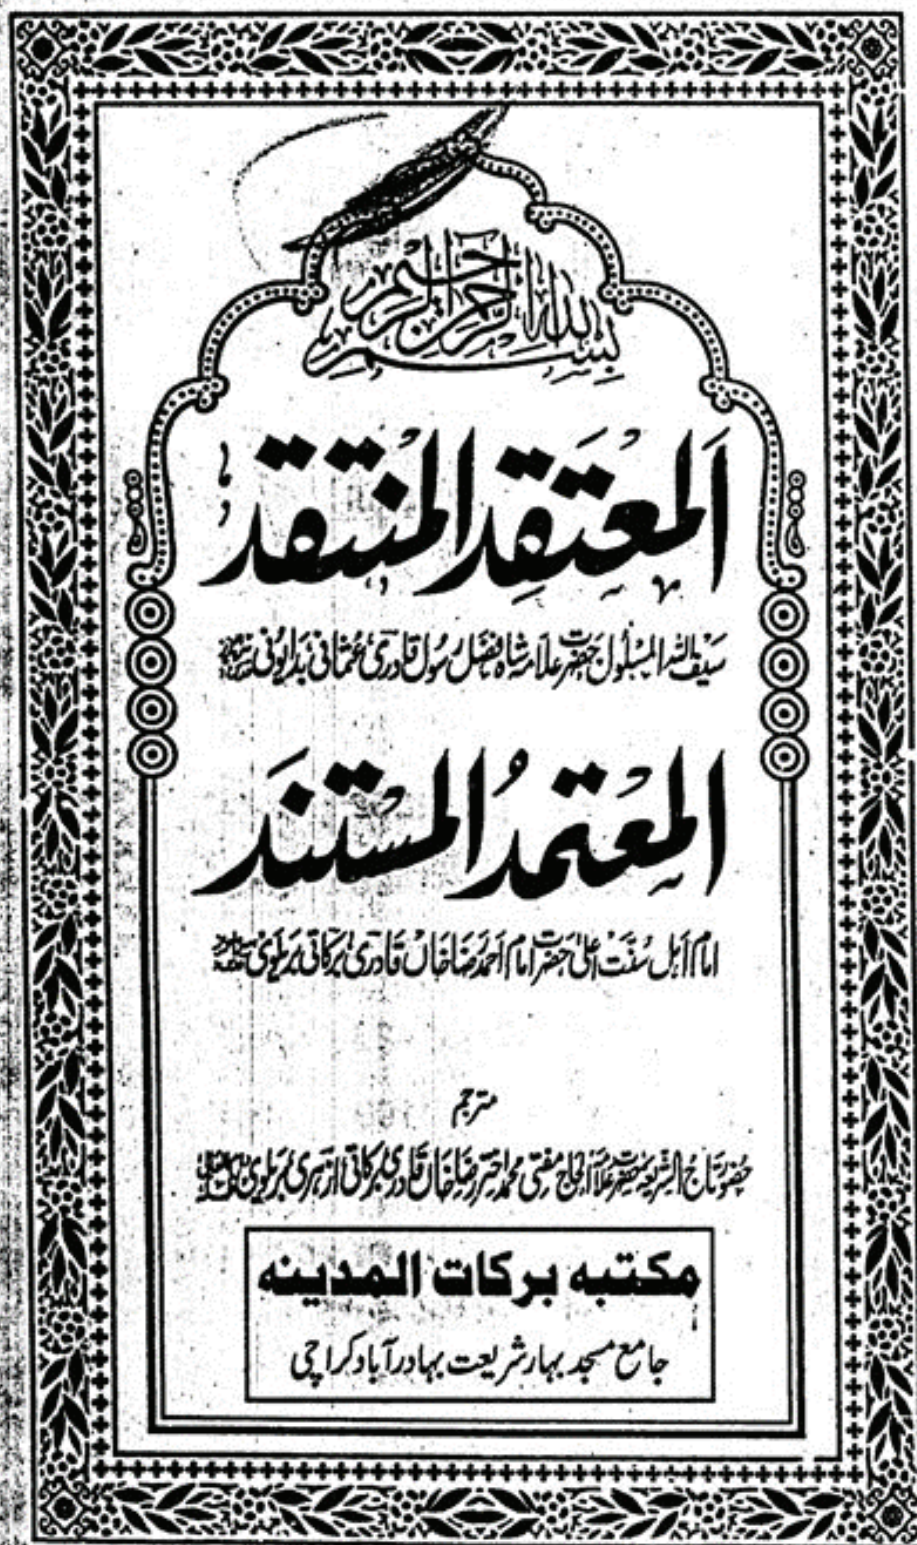 بسم الله الرحمن الرحيم
اَلمُعْتَقِدُ المُنْتَقَدْ
سَیفُ اللہ المسْلُول حضرت علامہ شاہ فضل رسُول قادری عثمانی بدایونی
المُعْتَمَدُ المُسْتَنَدْ
امام اہل سُنّت اعلیٰ حضرت امام احمد رضا خاں قادری برکاتی بریلوی
مترجم
حضور تاج الشریعہ حضرت علامہ الحاج مفتی محمد اختر رضا خاں قادری برکاتی ازہری بریلوی
مكتبه بركات المدينه
جامع مسجد بہار شریعت بہادر آباد کراچی